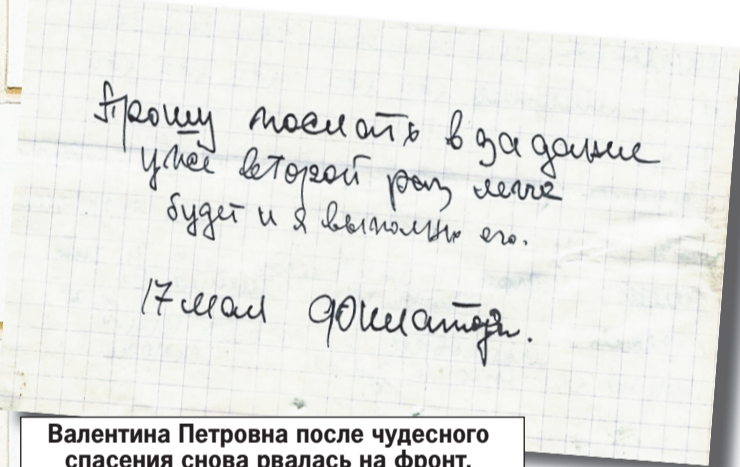 Прошу послать в задание
уже второй раз легче
будет и я выполню его.
17 мая
Валентина Петровна после чудесного
спасения снова рвалась на фронт.